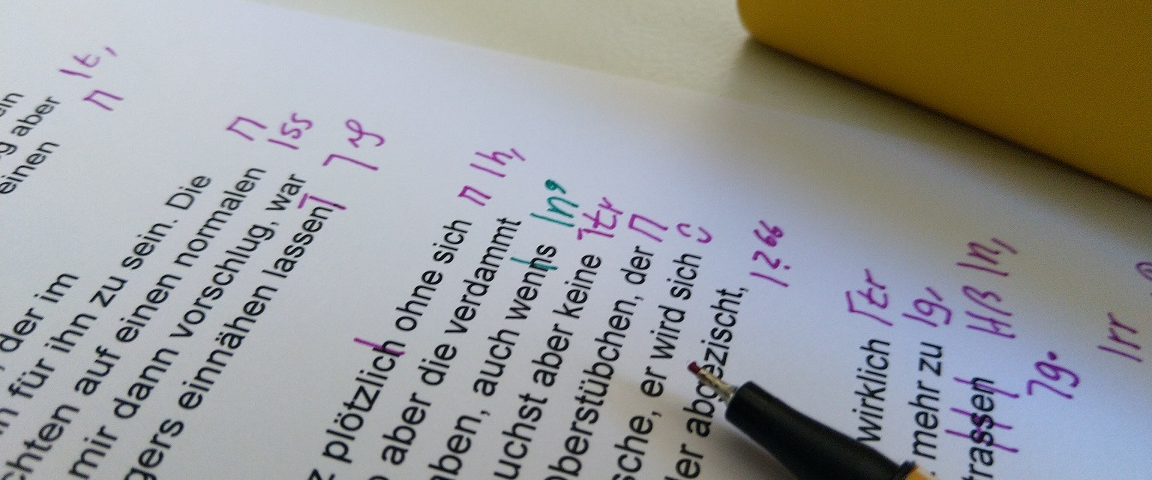 ein
g aber lt,
einen
der im
n für ihn zu sein. Die
chten auf einen normalen
mir dann vorschlug, war lss
gers einnähen lassen
z plötzlich ohne sich lh,
aber die verdammt
aben, auch wenns ln,
uchst aber keine tr
berstübchen, der
sche, er wird sich
er abgezischt, l?
wirklich tr
mehr zu lg,
trassen Hß ln,
g.
lrr